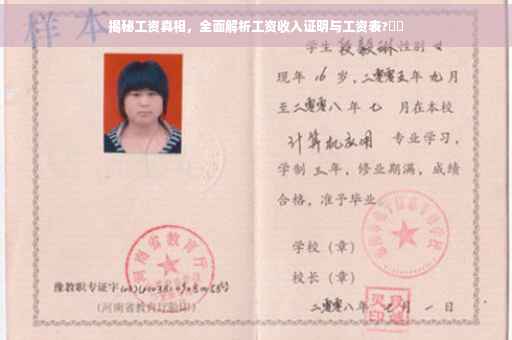 揭秘工资真相，全面解析工资收入证明与工资表?
样本
河南省教育厅
(河南省教育厅验印)
学生 段毅琳 性别 女
现年 16 岁，二零零五年 九 月
至 二零零八 年 七 月在本校
计算机应用 专业学习，
学制 三 年，修业期满，成绩
合格，准予毕业
学校（章）
校长（章）
二零零八 年 月 一 日